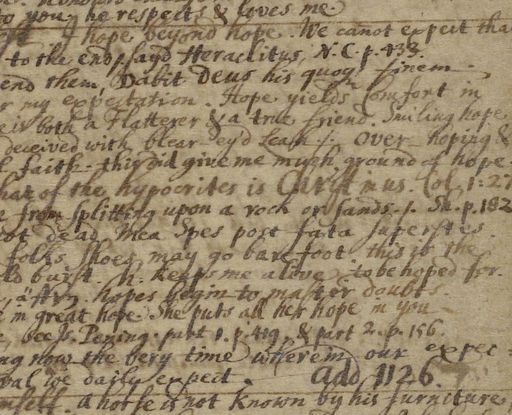 to you, he respects & loves me
hope beyond hope. We canot expect that
to the end, sayd Heraclitus, N.C. p. 433.
end them, Dabit Deus his quoq finem.
my expectation. Hope yields Comfort in
both a Flatterer & a true friend. Smiling hope
deceived with blear-eyd Leah /. Over-hoping &
faith. this did give me much ground of hope.
that of the hypocrites is Christ in us. Col. 1:27
from splitting upon a rock or sands /. Sa. p. 182
not dead Mea Spes post fata superstes.
folks shoes, may go bare foot. this is the
burst. h. keeps me alive, to be hoped for.
hopes begin to master doubts.
in great hope. She puts all her hope in you
part 1. p. 419. & part 2. p. 156.
now the very time wherein our expec=
we daily expect. add, 1126.
himself. a horse is not known by his furniture